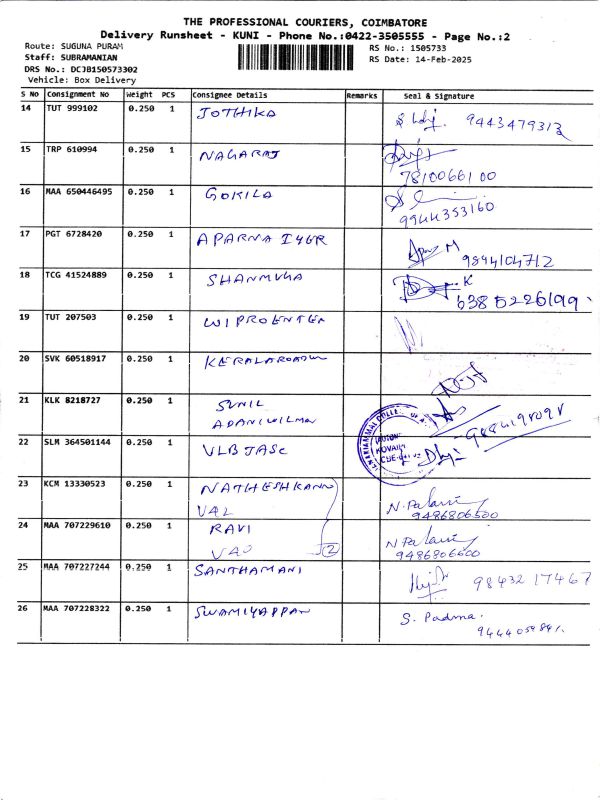 THE PROFESSIONAL COURIERS, COIMBATORE
Delivery Runsheet - KUNI - Phone No.:0422-3505555 - Page No.:2
Route: SUGUNA PURAM RS No.: 1505733
Staff: SUBRAMANIAN RS Date: 14-Feb-2025
DRS No.: DCJB150573302
Vehicle: Box Delivery
S No Consignment No Weight PCS Consignee Details Remarks Seal & Signature
14 TUT 999102 0.250 1 JOTHIKA 9443479313
15 TRP 610994 0.250 1 NAGARAJ
7810066100
16 MAA 650446495 0.250 1 GOKILA
9944353160
17 PGT 6728420 0.250 1 APARNA IYER M
9844104712
18 TCG 41524889 0.250 1 SHANMUGA K
6385226199
19 TUT 207503 0.250 1 WIPROENTER
20 SVK 60518917 0.250 1
21 KLK 8218727 0.250 1 SUNIL
ADANIWILMA
22 SLM 364501144 0.250 1 VLB JASC
23 KCM 13330523 0.250 1 NATHESHKANN
VAL N. Palani
9486806500
24 MAA 707229610 0.250 1 RAVI
VAO 2 N Palani
9486806500
25 MAA 707227244 0.250 1 SANTHAMANI 98432 17467
26 MAA 707228322 0.250 1 SWAMIYAPPAN S. Padma.